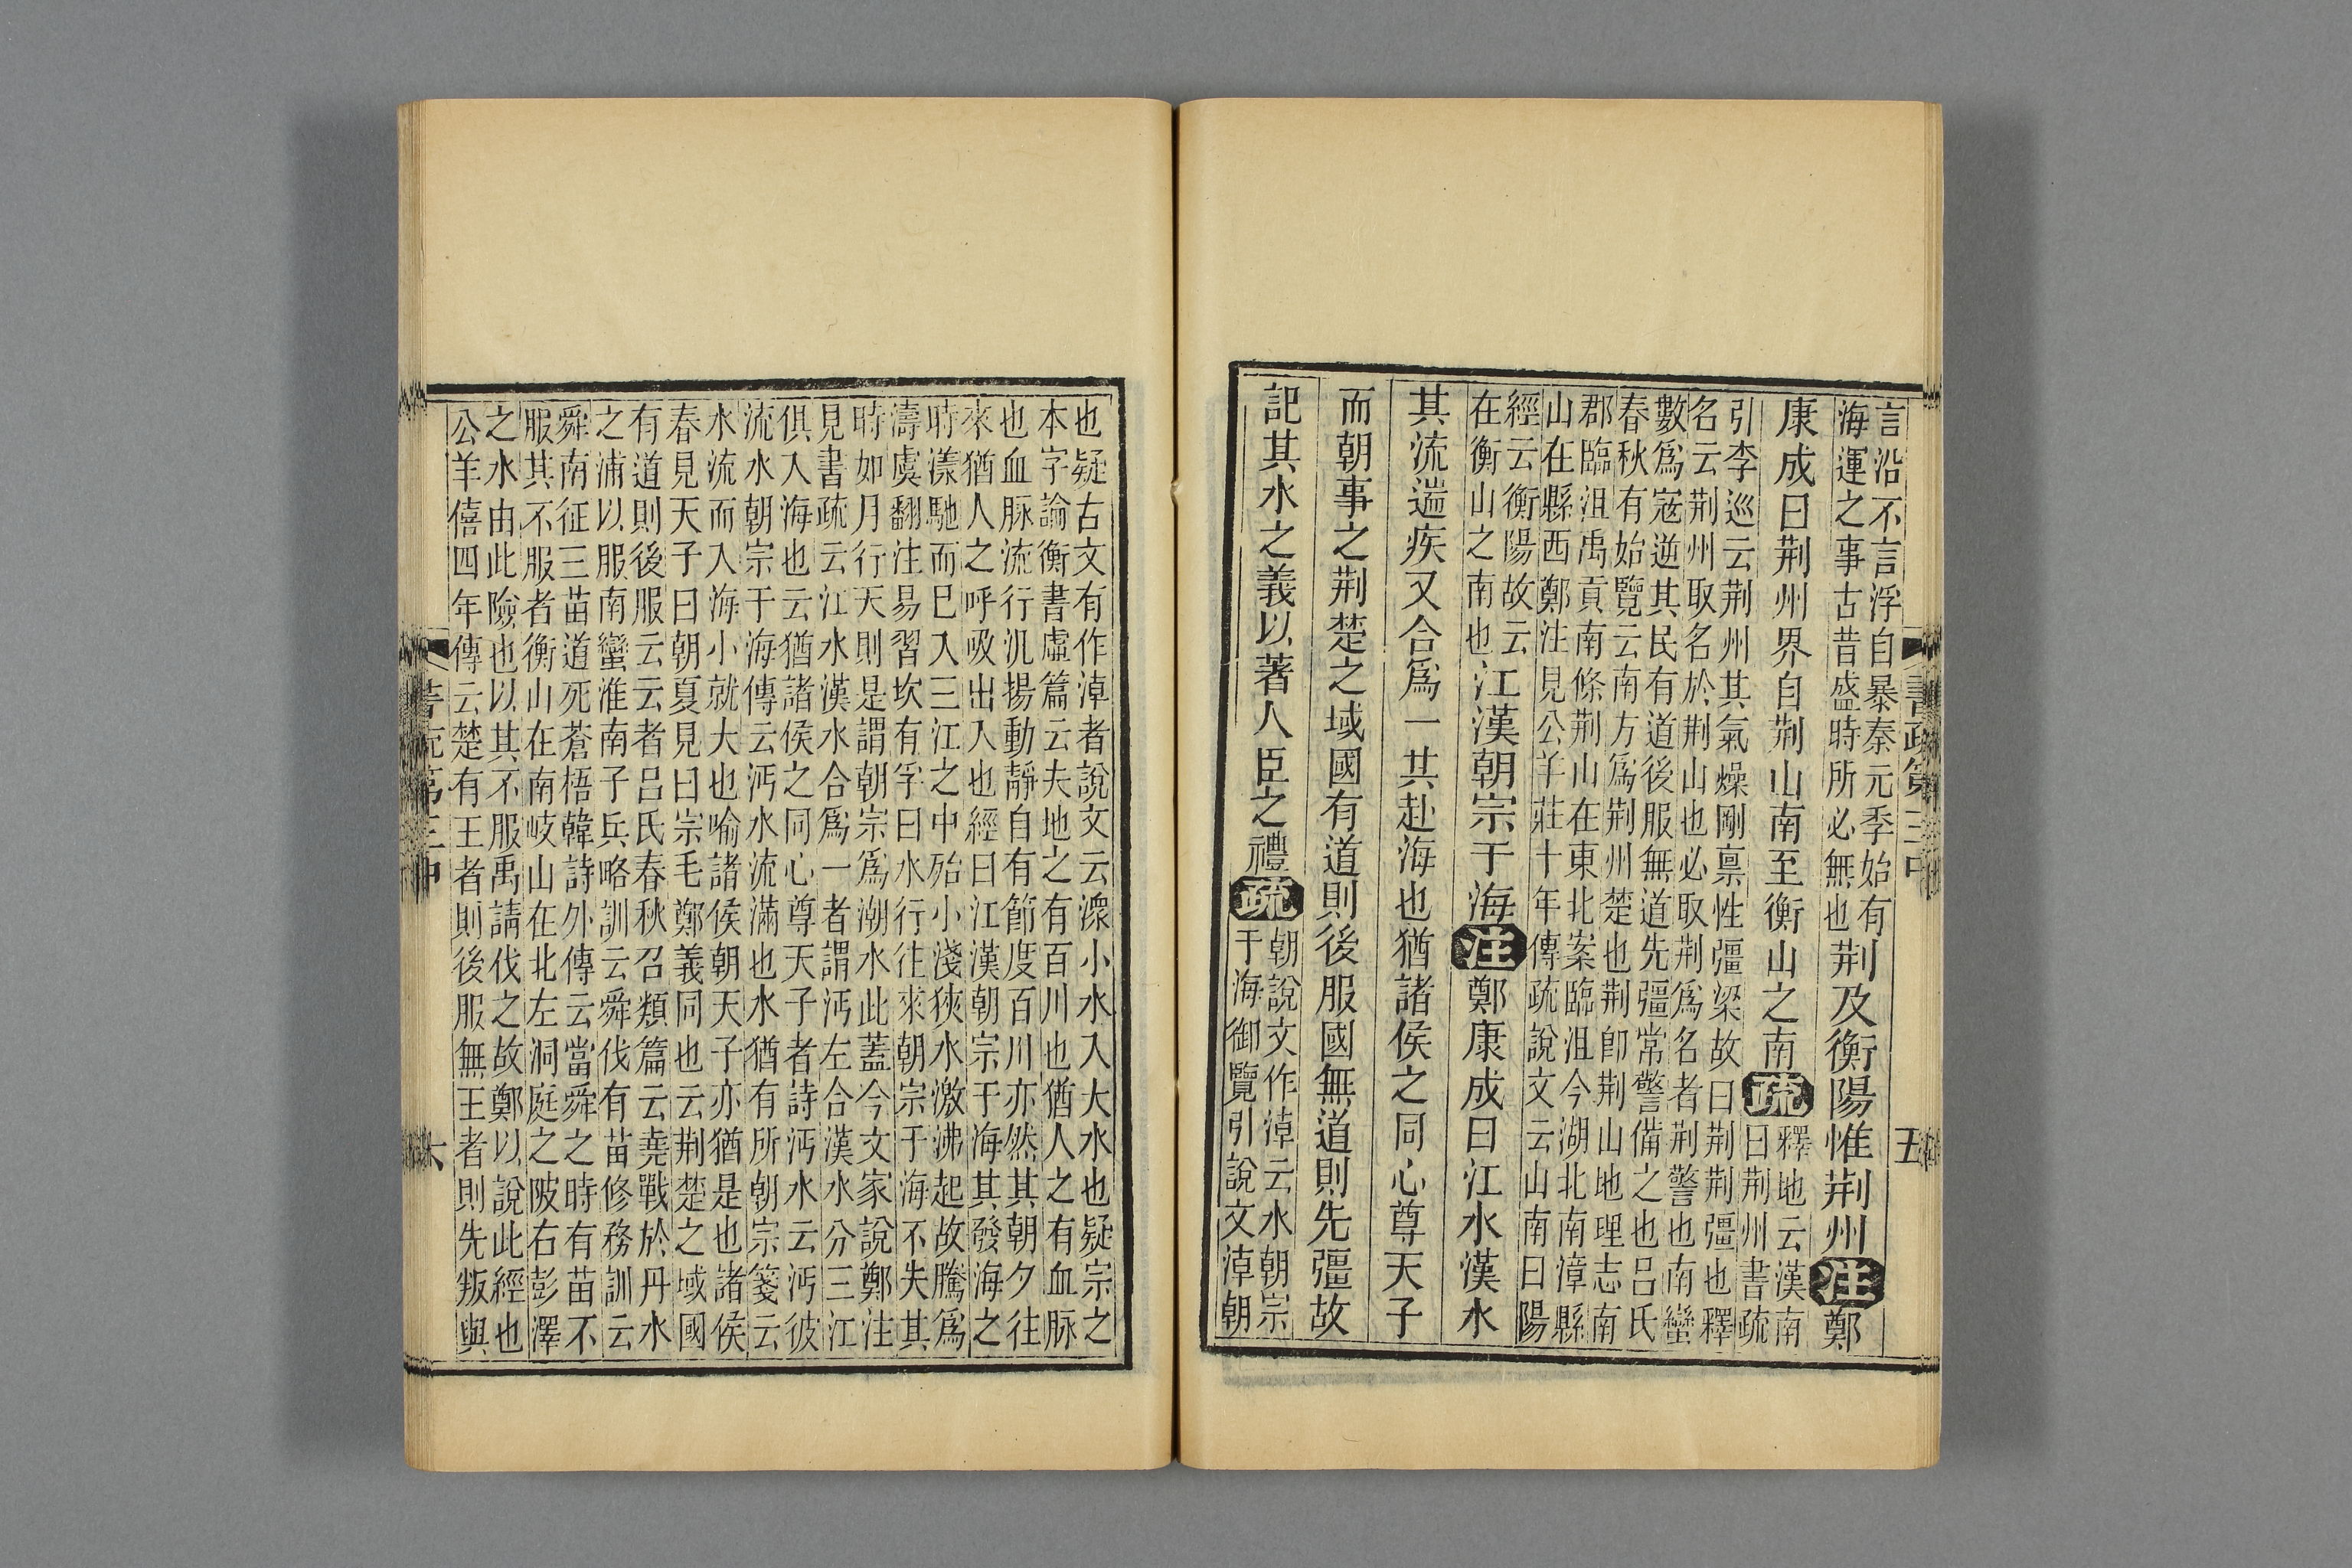 書疏第三中 五
言沿不言浮自暴秦元季始有
海運之事古昔盛時所必無也
荆及衡陽惟荆州注鄭
康成曰荆州界自荆山南至衡山之南疏
釋地云漢南
曰荆州書疏
引李巡云荆州其氣燥剛稟性彊梁故曰荆荆彊也釋
名云荆州取名於荆山也必取荆爲名者荆警也南蠻
數爲寇逆其民有道後服無道先彊常警備之也呂氏
春秋有始覽云南方爲荆州楚也荆卽荆山地理志南
郡臨沮禹貢南條荆山在東北案臨沮今湖北南漳縣
山在縣西鄭注見公羊莊十年傳疏說文云山南曰陽
經云衡陽故云
在衡山之南也
江漢朝宗于海注鄭康成曰江水漢水
其流遄疾又合爲一共赴海也猶諸侯之同心尊天子
而朝事之荆楚之域國有道則後服國無道則先彊故
記其水之義以著人臣之禮疏
朝說文作淖云水朝宗
于海御覽引說文淖朝
也疑古文有作淖者說文云潨小水入大水也疑宗之
本字論衡書虛篇云夫地之有百川也猶人之有血脈
也血脈流行汎揚動靜自有節度百川亦然其朝夕往
來猶人之呼吸出入也經曰江漢朝宗于海其發海之
時漾馳而巳入三江之中殆小淺狹水激沸起故騰爲
濤虞翻注易習坎有孚曰水行往來朝宗于海不失其
時如月行天則是謂朝宗爲潮水此蓋今文家說鄭注
見書疏云江水漢水合爲一者謂沔左合漢水分三江
俱入海也云猶諸侯之同心尊天子者詩沔水云沔彼
流水朝宗于海傳云沔水流滿也水猶有所朝宗箋云
水流而入海小就大也喻諸侯朝天子亦猶是也諸侯
春見天子曰朝夏見曰宗毛鄭義同也云荆楚之域國
有道則後服云云者呂氏春秋召類篇云堯戰於丹水
之浦以服南蠻淮南子兵略訓云舜伐有苗修務訓云
舜南征三苗道死蒼梧韓詩外傳云當舜之時有苗不
服其不服者衡山在南岐山在北左洞庭之陂右彭澤
之水由此險也以其不服禹請伐之故鄭以說此經也
公羊僖四年傳云楚有王者則後服無王者則先叛與
六